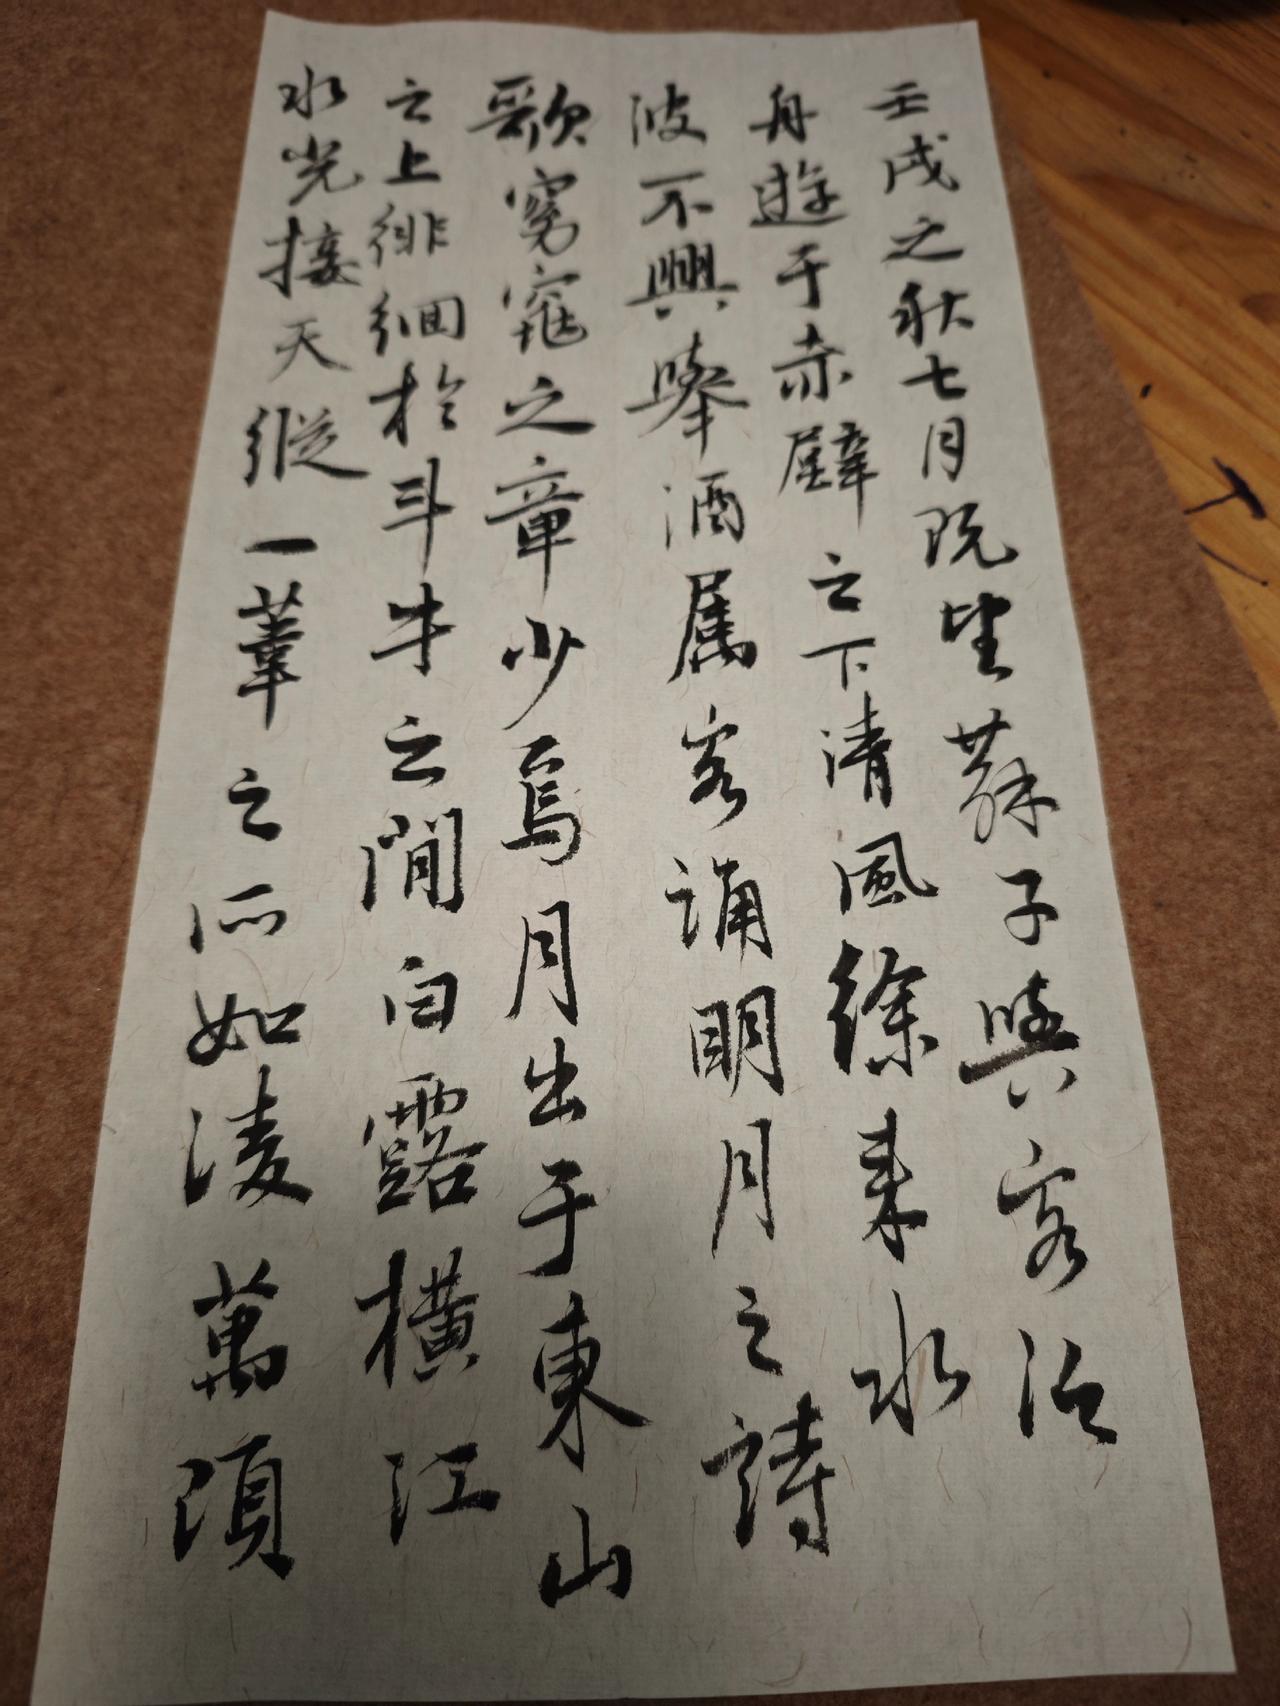 壬戌之秋七月既望蘇子與客泛
舟遊于赤壁之下清風徐来水
波不興舉酒属客誦明月之詩
歌窈窕之章少焉月出于東山
之上徘徊於斗牛之間白露橫江
水光接天縱一葦之所如淩萬頃